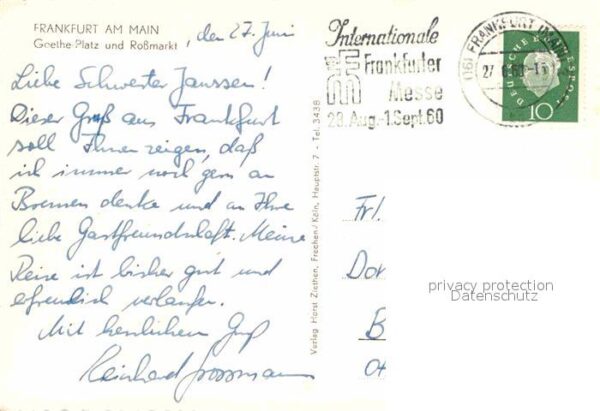 FRANKFURT AM MAIN
Goethe-Platz und Roßmarkt
, den 27. Juni
Liebe Schwester Janssen!
Dieser Gruß aus Frankfurt
soll Ihnen zeigen, daß
ich immer noch gern an
Bremen denke und an Ihre
liebe Gastfreundschaft. Meine
Reise ist bisher gut und
erfreulich verlaufen.
Mit herzlichem Gruß
Reinhard Grossmann
Verlag Horst Ziethen, Frechen/Köln, Hauptstr. 7 - Tel. 3438
Internationale
Frankfurter
Messe
29. Aug.-1. Sept. 60
(16) FRANKFURT (MAIN)
27.6.60-15
DEUTSCHE BUNDESPOST
10
Frl.
Dor
B
privacy protection
Datenschutz